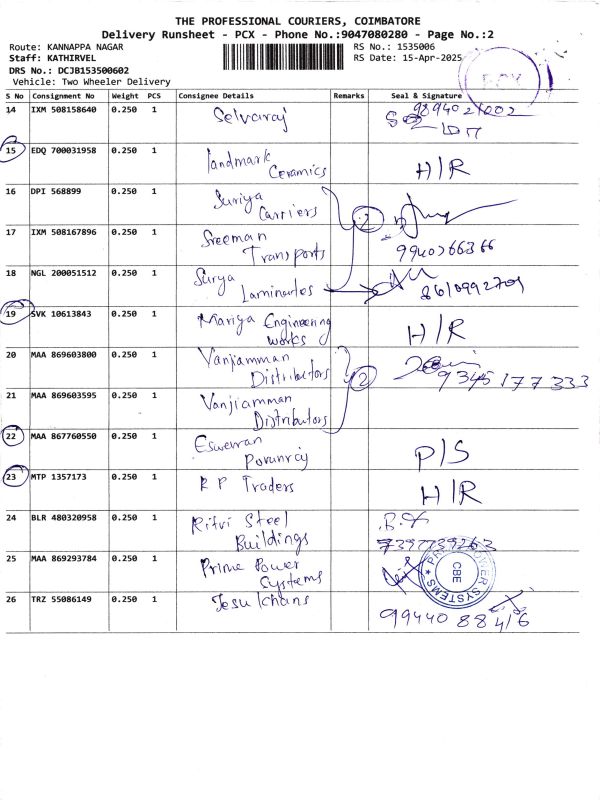 THE PROFESSIONAL COURIERS, COIMBATORE
Delivery Runsheet - PCX - Phone No.:9047080280 - Page No.:2
Route: KANNAPPA NAGAR
Staff: KATHIRVEL
DRS No.: DCJB153500602
Vehicle: Two Wheeler Delivery
RS No.: 1535006
RS Date: 15-Apr-2025
S No Consignment No Weight PCS Consignee Details Remarks Seal & Signature
14 IXM 508158640 0.250 1 Selvaraj 9894021002
15 EDQ 700031958 0.250 1 Landmark Ceramics H/R
16 DPI 568899 0.250 1 Suriya Carriers 2
17 IXM 508167896 0.250 1 Sreeman Transports 9940266366
18 NGL 200051512 0.250 1 Surya Laminates 8610992709
19 SVK 10613843 0.250 1 Mariya Engineering Works H/R
20 MAA 869603800 0.250 1 Vanjiamman Distributors 2 9345177333
21 MAA 869603595 0.250 1 Vanjiamman Distributors
22 MAA 867760550 0.250 1 Eswevran P/S
23 MTP 1357173 0.250 1 R P Traders H/R
24 BLR 480320958 0.250 1 Ritvi Steel Buildings 7397739263
25 MAA 869293784 0.250 1 Prime Power Systems CBE
26 TRZ 55086149 0.250 1 9944088416